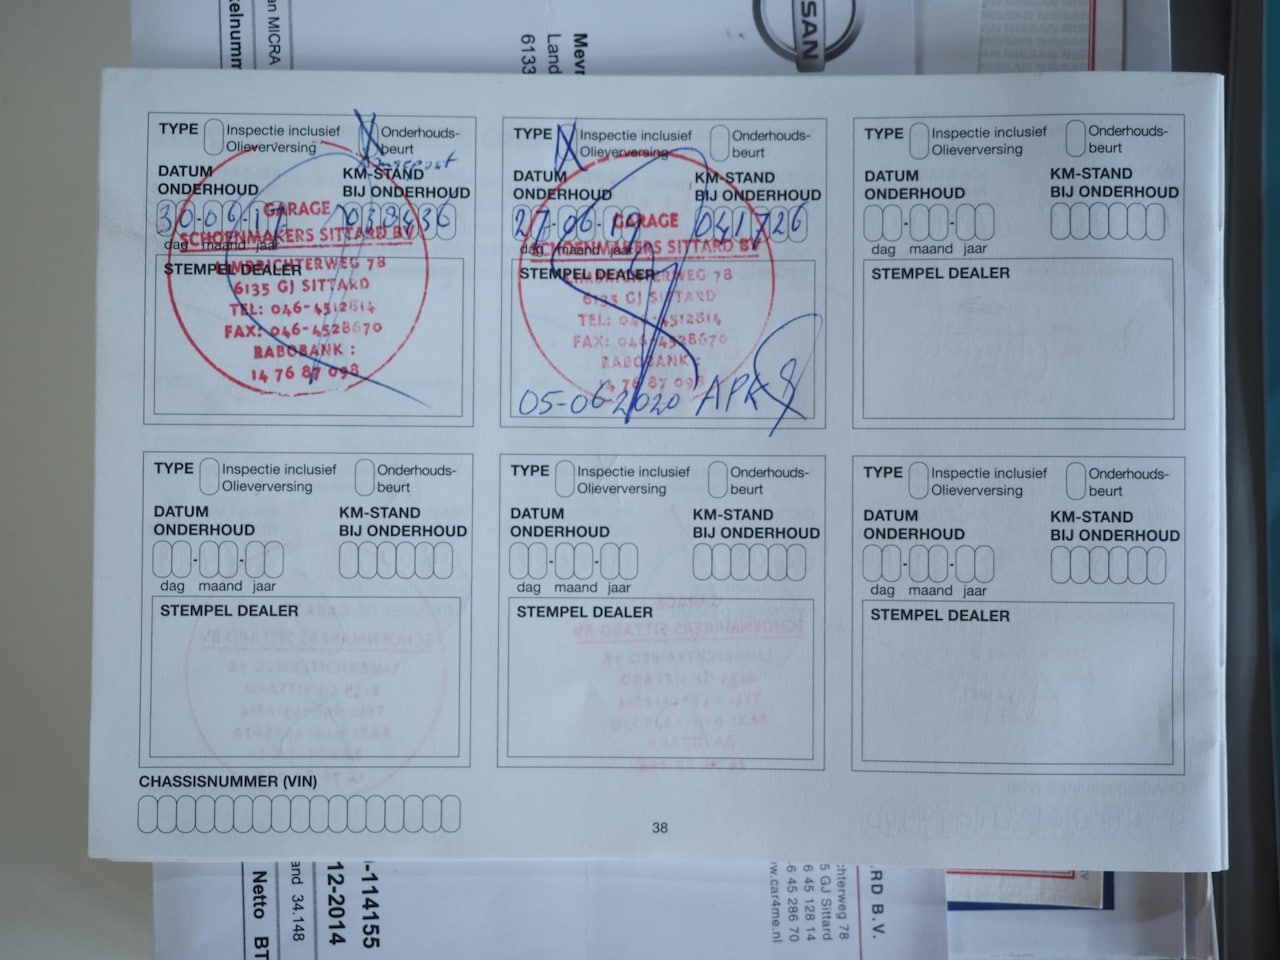 an MICRA
kelnumm
Mevr
Land
6133
SSAN
TYPE Inspectie inclusief Olieverversing Onderhouds-beurt
DATUM ONDERHOUD
KM-STAND BIJ ONDERHOUD
30-06-17
038436
dag maand jaar
STEMPEL DEALER
GARAGE
SCHOENMAKERS SITTARD BV
LIMBRICHTERWEG 78
6135 GJ SITTARD
TEL: 046-4512814
FAX: 046-4528670
RABOBANK :
14 76 87 098
TYPE Inspectie inclusief Olieverversing Onderhouds-beurt
DATUM ONDERHOUD
KM-STAND BIJ ONDERHOUD
27-06-19
041726
dag maand jaar
STEMPEL DEALER
GARAGE
SCHOENMAKERS SITTARD BV
LIMBRICHTERWEG 78
6135 GJ SITTARD
TEL: 046-4512814
FAX: 046-4528670
RABOBANK :
14 76 87 098
05-06-2020 APK
TYPE Inspectie inclusief Olieverversing Onderhouds-beurt
DATUM ONDERHOUD
KM-STAND BIJ ONDERHOUD
dag maand jaar
STEMPEL DEALER
TYPE Inspectie inclusief Olieverversing Onderhouds-beurt
DATUM ONDERHOUD
KM-STAND BIJ ONDERHOUD
dag maand jaar
STEMPEL DEALER
TYPE Inspectie inclusief Olieverversing Onderhouds-beurt
DATUM ONDERHOUD
KM-STAND BIJ ONDERHOUD
dag maand jaar
STEMPEL DEALER
TYPE Inspectie inclusief Olieverversing Onderhouds-beurt
DATUM ONDERHOUD
KM-STAND BIJ ONDERHOUD
dag maand jaar
STEMPEL DEALER
CHASSISNUMMER (VIN)
38
-114155
12-2014
and 34.148
Netto BT
RD B.V.
chterweg 78
5 GJ Sittard
6 45 128 14
-6 45 286 70
w.car4me.nl